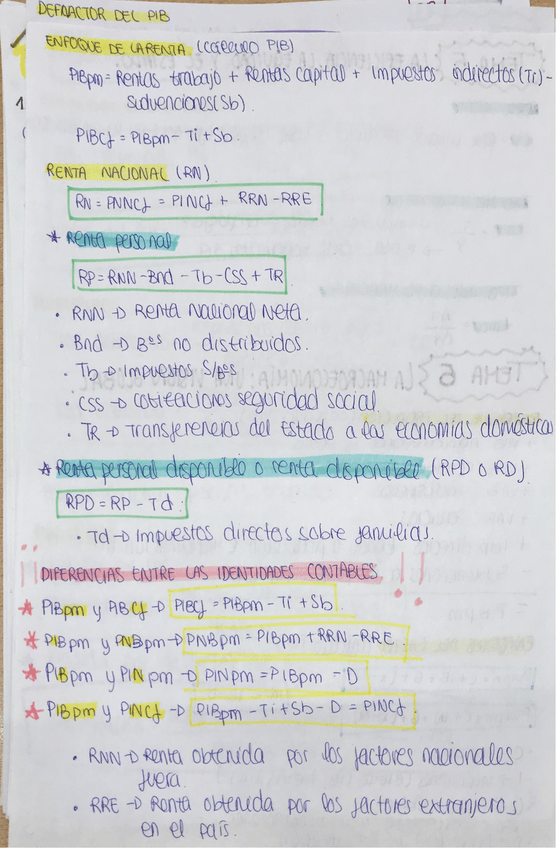 DEFLACTOR DEL PIB
ENFOQUE DE LA RENTA (CÁLCULO PIB)
PIBpm = Rentas trabajo + Rentas capital + Impuestos indirectos (Ti) -
Subvenciones (Sb).
PIBcf = PIBpm - Ti + Sb.
RENTA NACIONAL (RN)
RN = PNNcf = PINcf + RRN - RRE
* Renta personal
RP = RNN - Bnd - Tb - CSS + TR
• RNN → Renta Nacional Neta.
• Bnd → Bºs no distribuidos.
• Tb → Impuestos S/Bºs
• CSS → cotizaciones seguridad social
• TR → Transferencias del Estado a las economías domésticas
* Renta personal disponible o renta disponible (RPD o RD)
RPD = RP - Td.
• Td → Impuestos directos sobre familias.
!! DIFERENCIAS ENTRE LAS IDENTIDADES CONTABLES !!
* PIBpm y PIBcf → PIBcf = PIBpm - Ti + Sb
* PIBpm y PNBpm → PNBpm = PIBpm + RRN - RRE
* PIBpm y PINpm → PINpm = PIBpm - D
* PIBpm y PINcf → PIBpm - Ti + Sb - D = PINcf
• RNN → Renta obtenida por los factores nacionales
fuera.
• RRE → Renta obtenida por los factores extranjeros
en el país.